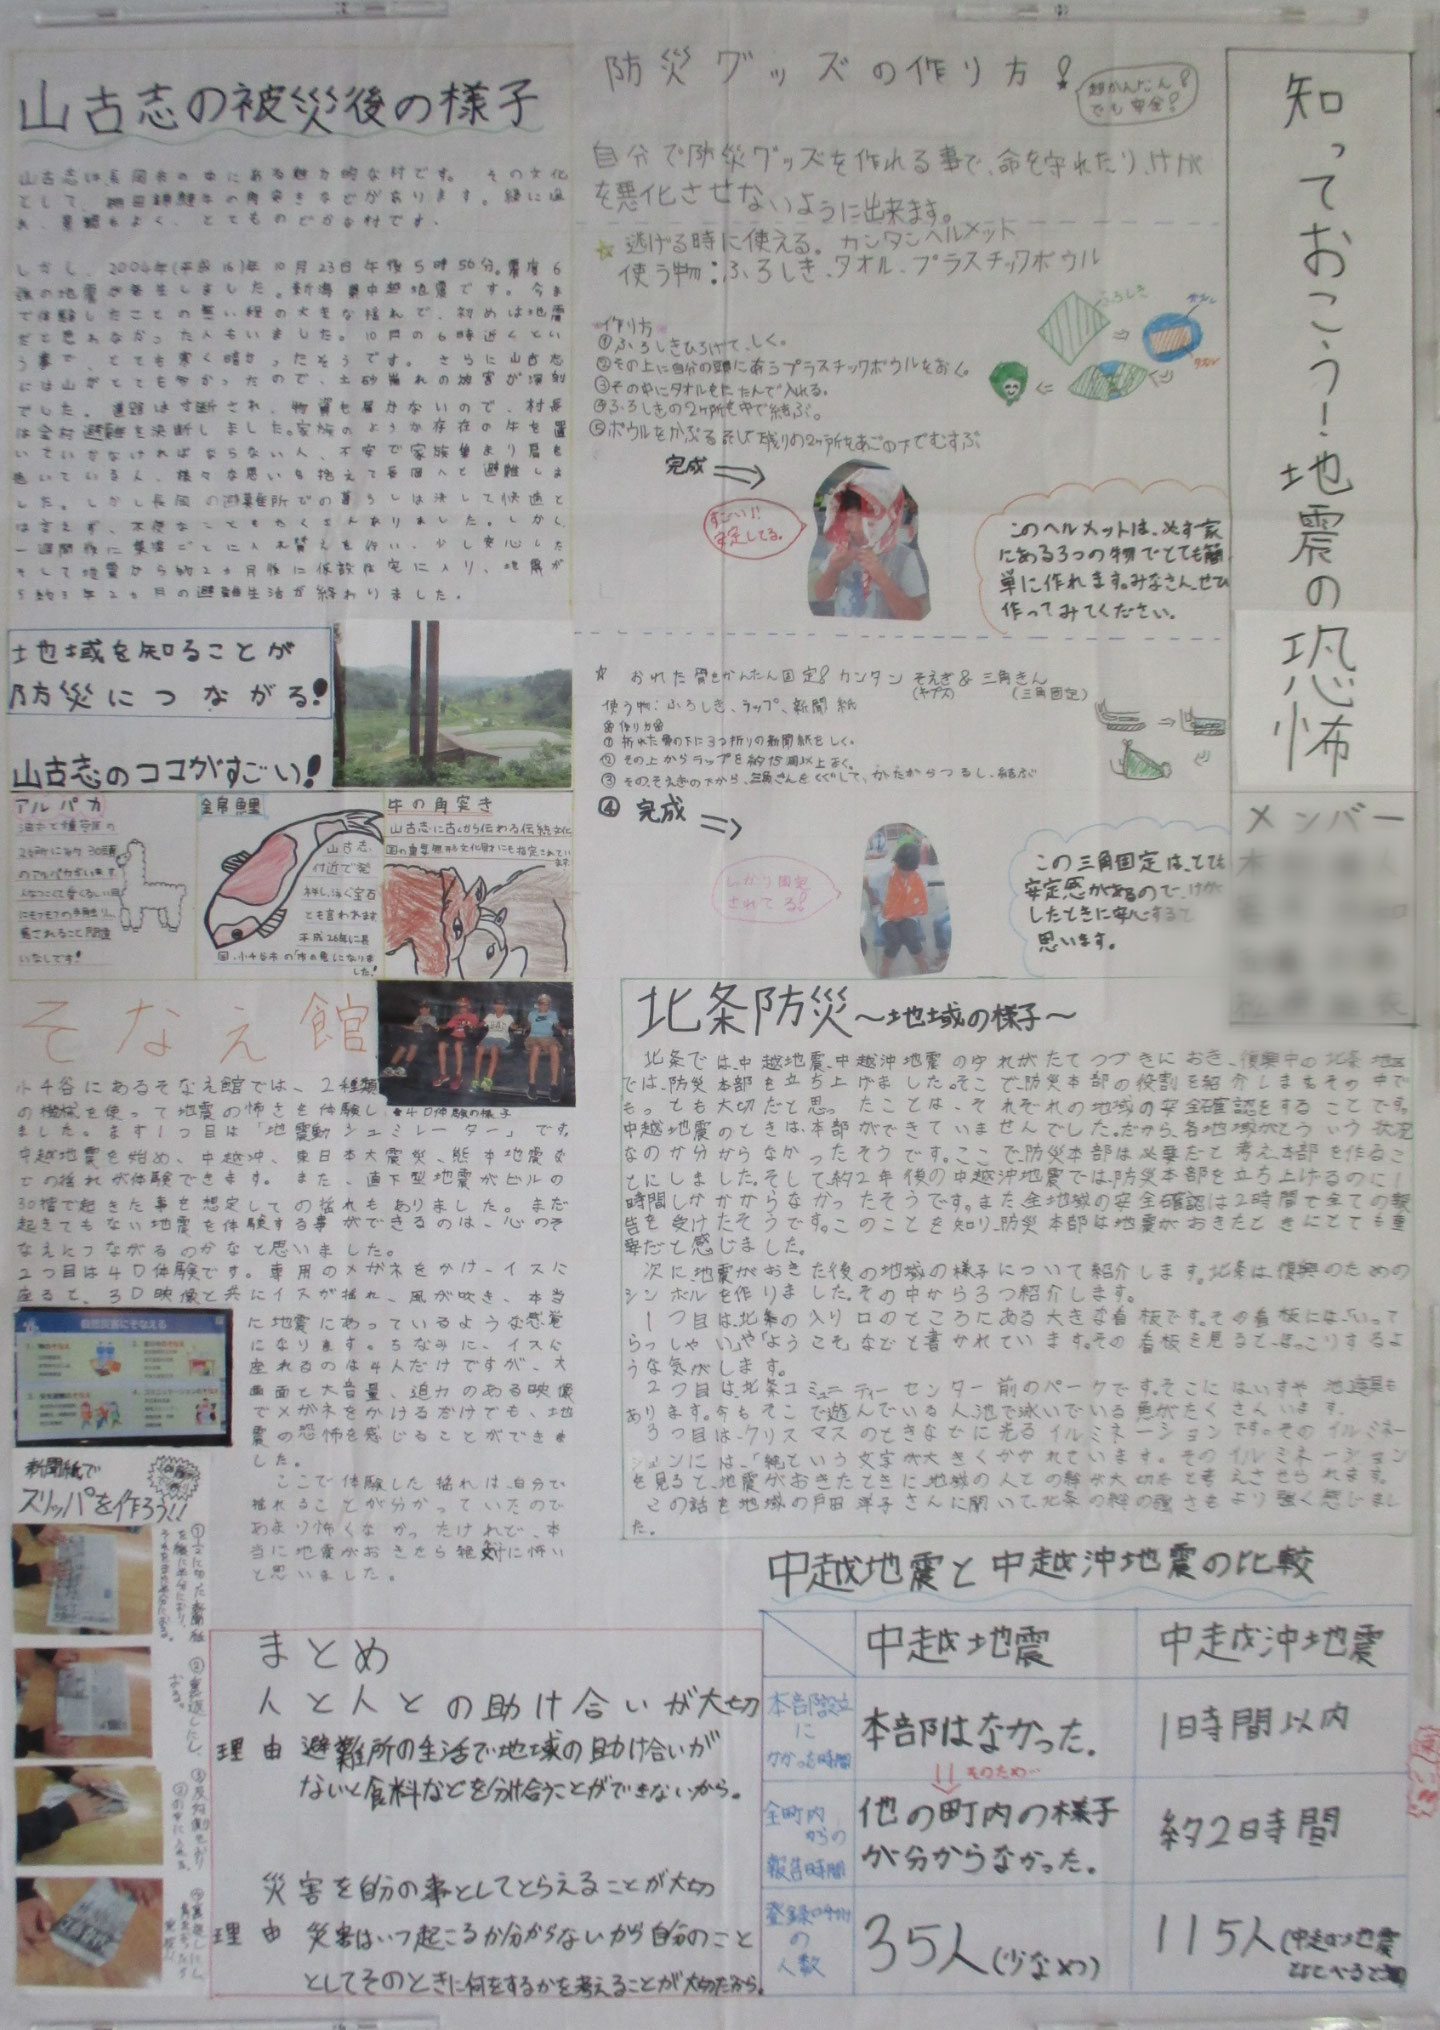 知っておこう!地震の恐怖
メンバー
防災グッズの作り方!
超かんたん!
でも安全!
自分で防災グッズを作れる事で、命を守れたり、けが
を悪化させないように出来ます。
☆ 逃げる時に使える。カンタンヘルメット
使う物:ふろしき、タオル、プラスチックボウル
ふろしき
作り方
①ふろしきひろげて、しく。
②その上に自分の頭にあうプラスチックボウルをおく。
③その中にタオルをたたんで入れる。
④ふろしきの2ヶ所を中で結ぶ。
⑤ボウルをかぶる
残りの2ヶ所をあごの下でむすぶ
完成
すごい!!
安定してる。
このヘルメットは、必ず家
にある3つの物でとても簡
単に作れます。みなさん、ぜひ
作ってみてください。
☆ おれた骨をかんたん固定! カンタン そえぎ & 三角きん
(ギプス) (三角固定)
使う物:ふろしき、ラップ、新聞紙
作り方
① 折れた骨の下に3つ折りの新聞紙をしく。
② その上からラップを約15周以上まく。
③ そのそえぎの下から、三角きんをくぐして、かたからつるし、結ぶ
④ 完成
しっかり固定
されてる!
この三角固定は、とても
安定感があるので、けが
したときに安心すると
思います。
山古志の被災後の様子
山古志は、長岡市の中にある魅力的な村です。その文化
として、棚田、錦鯉、牛の角突きなどがあります。緑に囲ま
れ、景観もよく、とてものどかな村です。
しかし、2004年(平成16)年10月23日午後5時56分。震度6
強の地震が発生しました。新潟県中越地震です。今ま
で体験したことの無い程の大きな揺れで、初めは地震
だと思わなかった人もいました。10月の6時近くとい
う事で、とても寒く暗かったそうです。さらに山古志
には山がとても多かったので、土砂崩れの被害が深刻
でした。道路は寸断され、物資も届かないので、村長
は全村避難を決断しました。家族のような存在の牛を置
いていかなければならない人、不安で家族集まり肩を
抱いている人、様々な思いを抱えて長岡へと避難しま
した。しかし長岡の避難所での暮らしは決して快適と
は言えず、不便なこともたくさんありました。しかし
一週間後に集落ごとに入れ替えを行い、少し安心した
そして地震から約2ヵ月後に仮設住宅に入り、地震か
ら約3年2ヵ月の避難生活が終わりました。
地域を知ることが
防災につながる!
山古志のココがすごい!
アルパカ
油夫と種苧原の
2ヵ所に約30頭
のアルパカがいます。
人なつこくて愛くるしい目
にもふもふの手触り、
癒されること間違
いなしです!
錦鯉
山古志、
付近で発
祥し、泳ぐ宝石
とも言われます
平成26年に長
岡、小千谷市の「市の魚」になりま
した!
牛の角突き
山古志に古くから伝わる伝統文化
国の重要無形文化財にも指定されてい
ます
そなえ館
★4D体験の様子
小千谷にあるそなえ館では、2種類
の機械を使って地震の怖さを体験し
ました。まず1つ目は「地震動シュミレーター」です。
中越地震を始め、中越沖、東日本大震災、熊本地震ま
での揺れが体験できます。また、直下型地震がビルの
30階で起きた事を想定しての揺れもありました。まだ
起きてもない地震を体験する事ができるのは、心のそ
なえにつながるのかなと思いました。
2つ目は4D体験です。専用のメガネをかけ、イスに
座ると、3D映像と共にイスが揺れ、風が吹き、本当
に地震にあっているような感覚
になります。ちなみに、イスに
座れるのは4人だけですが、大
画面と大音量、迫力のある映像
でメガネをかけるだけでも、地
震の恐怖を感じることができま
した。
ここで体験した揺れは、自分で
揺れることが分かっていたので
あまり怖くなかったけれど、本
当に地震がおきたら絶対に怖い
と思いました。
自然災害にそなえる
新聞紙で
スリッパを作ろう!!
北条防災〜地域の様子〜
北条では、中越地震、中越沖地震のゆれがたてつづきにおき、復興中の北条地区
では、防災本部を立ち上げました。そこで、防災本部の役割を紹介します。その中で
もっとも大切だと思ったことは、それぞれの地域の安全確認をすることです。
中越地震のときは、本部ができていませんでした。だから、各地域がどういう状況
なのか分からなかったそうです。ここで、防災本部は必要だと考え、本部を作るこ
とにしました。そして約2年後の中越沖地震では、防災本部を立ち上げるのに1
時間しかかからなかったそうです。また全地域の安全確認は2時間で全ての報
告を受けたそうです。このことを知り、防災本部は地震がおきたときにとても重
要だと感じました。
次に、地震がおきた後の地域の様子について紹介します。北条は、復興のための
シンボルを作りました。その中から3つ紹介します。
1つ目は、北条の入り口のところにある大きな看板です。その看板には、「いって
らっしゃい」や「ようこそ」などと書かれています。その看板を見ると、ほっこりするよ
うな気がします。
2つ目は、北条コミュニティーセンター前のパークです。そこにはいすや池、遊具も
あります。今もそこで遊んでいる人、池で泳いでいる魚がたくさんいます。
3つ目は、クリスマスのときなどに光るイルミネーションです。そのイルミネー
ションには、「絆」という文字が大きくかかれています。そのイルミネーション
を見ると、地震がおきたときに、地域の人との絆が大切だと考えさせられます。
この話を地域の戸田洋子さんに聞いて、北条の絆の強さをより強く感じまし
た。
まとめ
人と人との助け合いが大切
理由 避難所の生活で地域の助け合いが
ないと食料などを分け合うことができないから。
災害を自分の事としてとらえることが大切
理由 災害はいつ起こるか分からないから自分のこと
としてそのときに何をするかを考えることが大切だから。
中越地震と中越沖地震の比較
中越地震
中越沖地震
本部設立
に
かかった時間
本部はなかった。
そのため…
1時間以内
全町内
からの
報告時間
他の町内の様子
が分からなかった。
約2時間
の
人数
35人(少なめ)
115人